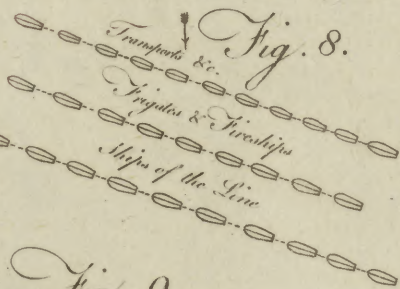 Fig. 8.
Transports &c.
Frigates & Fireships
Ships of the Line